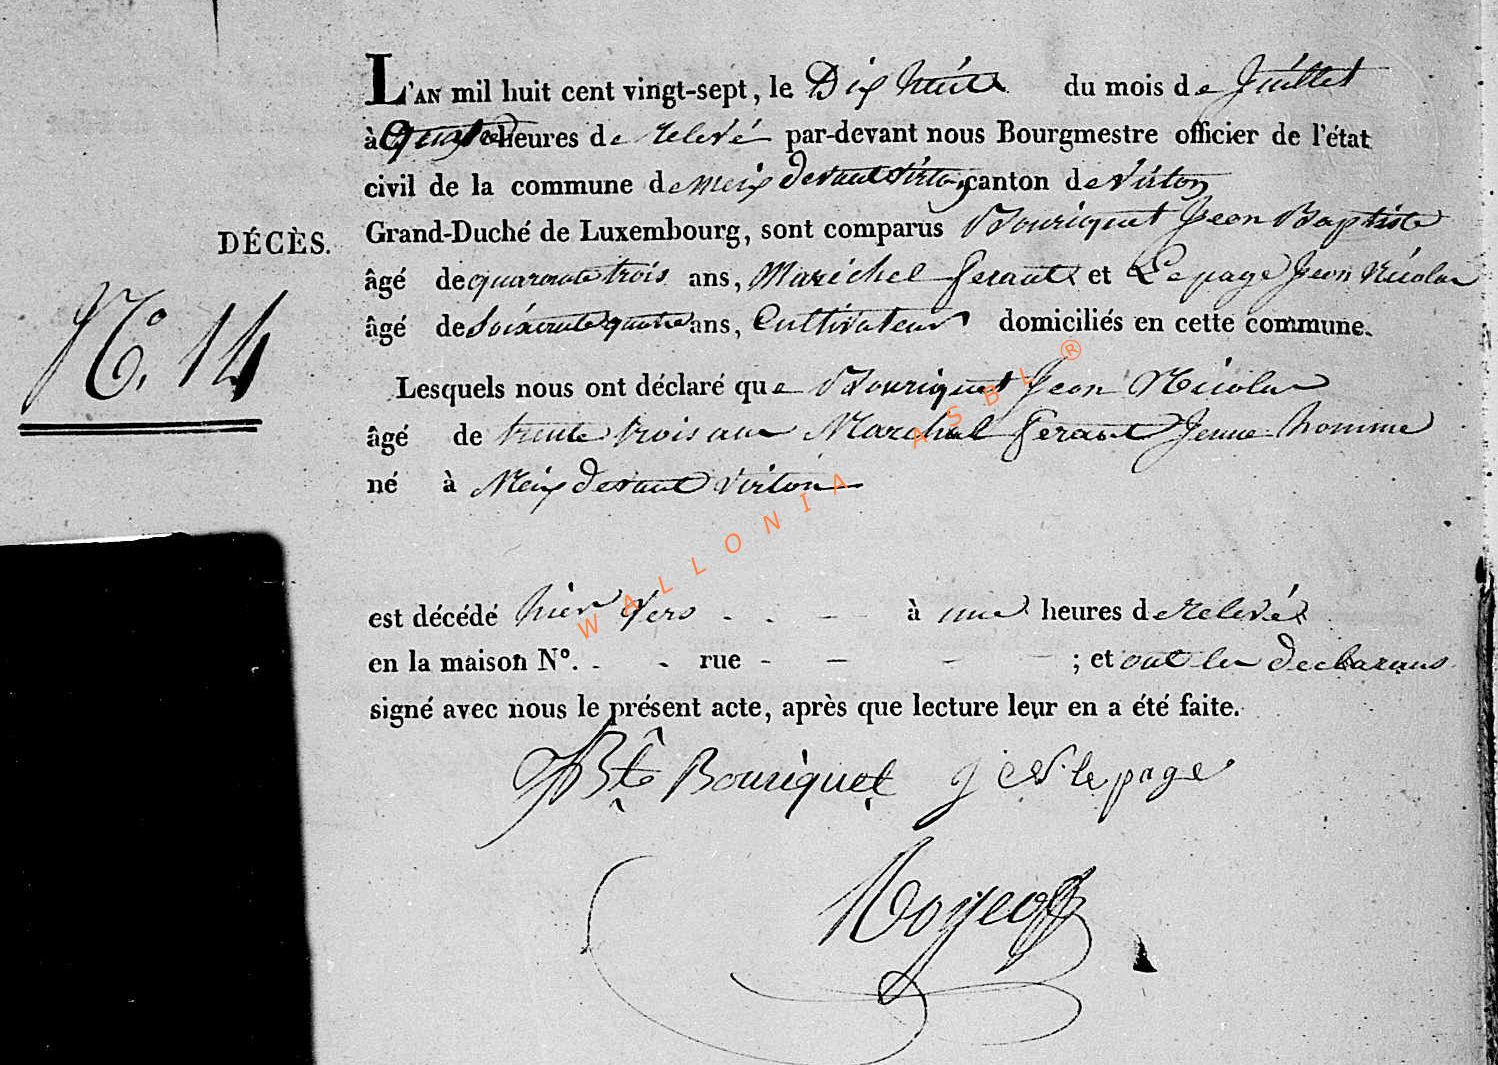 L'AN mil huit cent vingt-sept, le Dix huit du mois de Juillet
à quatre heures de relevé par-devant nous Bourgmestre officier de l'état
civil de la commune de Meix devant Virton, canton de Virton
DÉCÈS. Grand-Duché de Luxembourg, sont comparus Bouriquet Jean Baptiste
âgé de quarante trois ans, Maréchal ferant et Lepage Jean Nicolas
N.° 14 âgé de Soixante quatre ans, Cultivateur domiciliés en cette commune.
Lesquels nous ont déclaré que Bouriquet Jean Nicolas
âgé de trente trois ans Marechal ferant Jeune homme
né à Meix devant Virton
est décédé hier vers - - - à une heures de relevés
en la maison N°. - - rue - - - - ; et ont les declarans
signé avec nous le présent acte, après que lecture leur en a été faite.
JBte Bouriquet j n lepage
WALLONIA ASBL ®